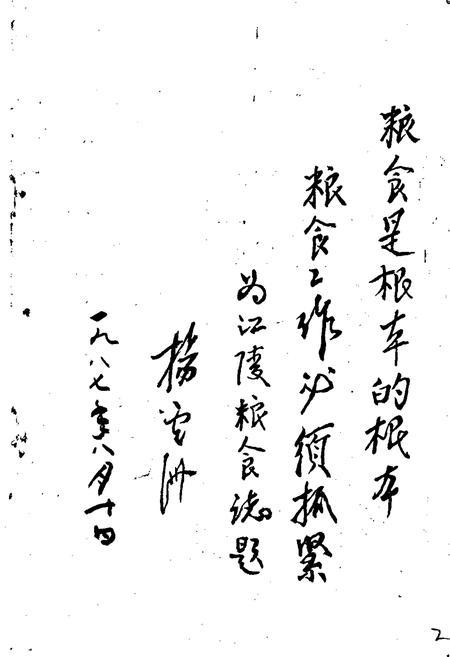 粮食是根本的根本
粮食工作必须抓紧
为江陵粮食志题
杨
一九八七年八月十四
2